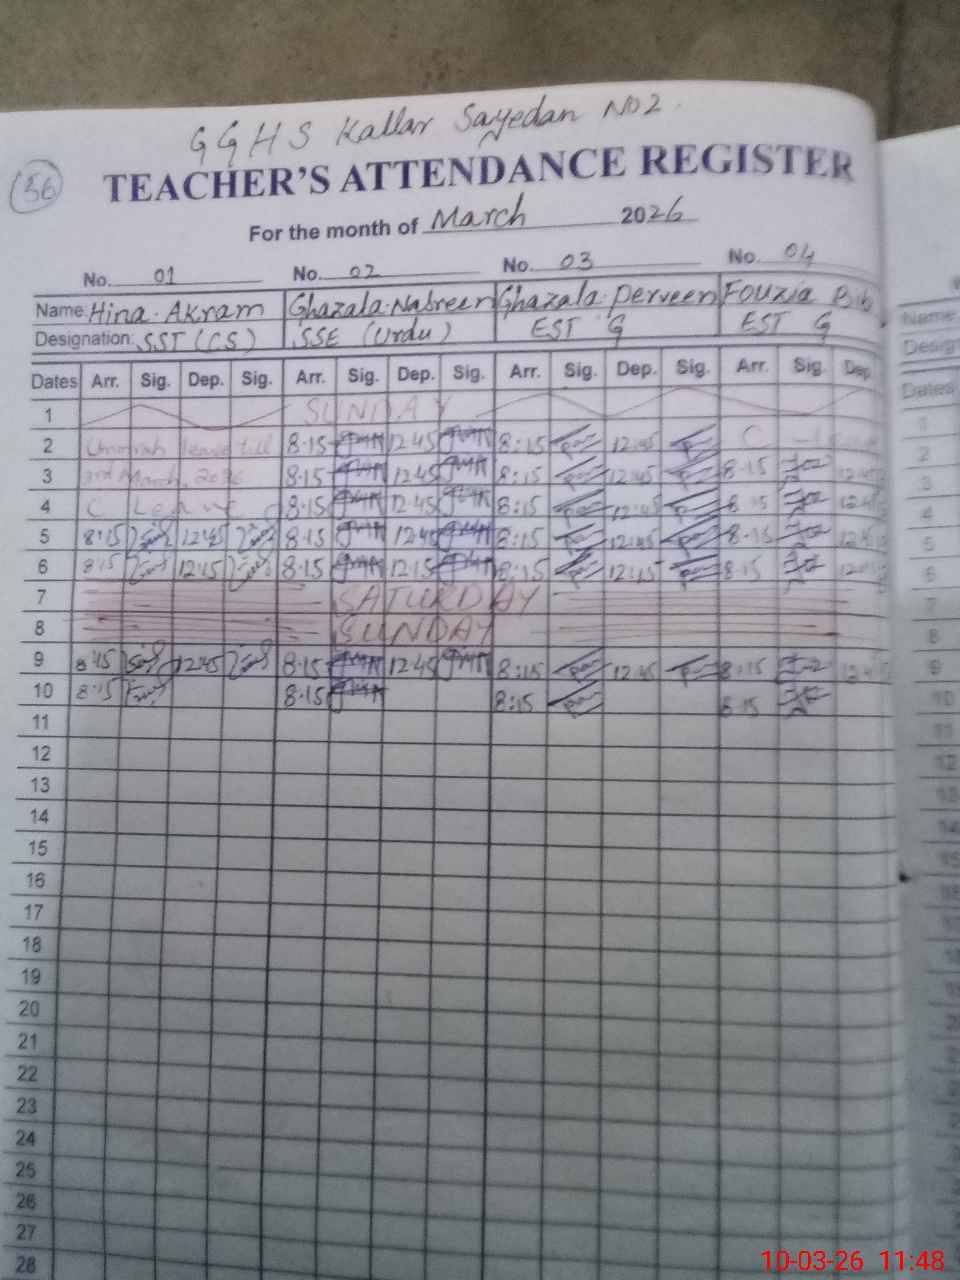 GGHS Kallar Sayedan No 2.
(56)
TEACHER'S ATTENDANCE REGISTER
For the month of March 2026
No. 01 No. 02 No. 03 No. 04
Name: Hina Akram Ghazala Nasreen Ghazala Perveen Fouzia Bib
Designation: SST (CS) SSE (Urdu) EST G EST G
Dates Arr. Sig. Dep. Sig. Arr. Sig. Dep. Sig. Arr. Sig. Dep. Sig. Arr. Sig. Dep.
1 SUNDAY
2 Ummrah leave till 8.15 12.45 8:15 12:45 C
3 3rd March, 2026 8.15 12.45 8:15 12:45 8.15 12.45
4 C Leave 8.15 12.45 8:15 12:45 8.15 12.45
5 8:15 12:45 8.15 12.45 8:15 12:45 8.15 12.45
6 8:15 12:15 8.15 12.15 8:15 12:15 8.15 12
7 SATURDAY
8 SUNDAY
9 8:15 12:45 8.15 12.45 8:15 12:45 8:15 12.4
10 8:15 8.15 8:15 8.15
11
12
13
14
15
16
17
18
19
20
21
22
23
24
25
26
27
28
Name
Desig
Dates
10-03-26 11:48